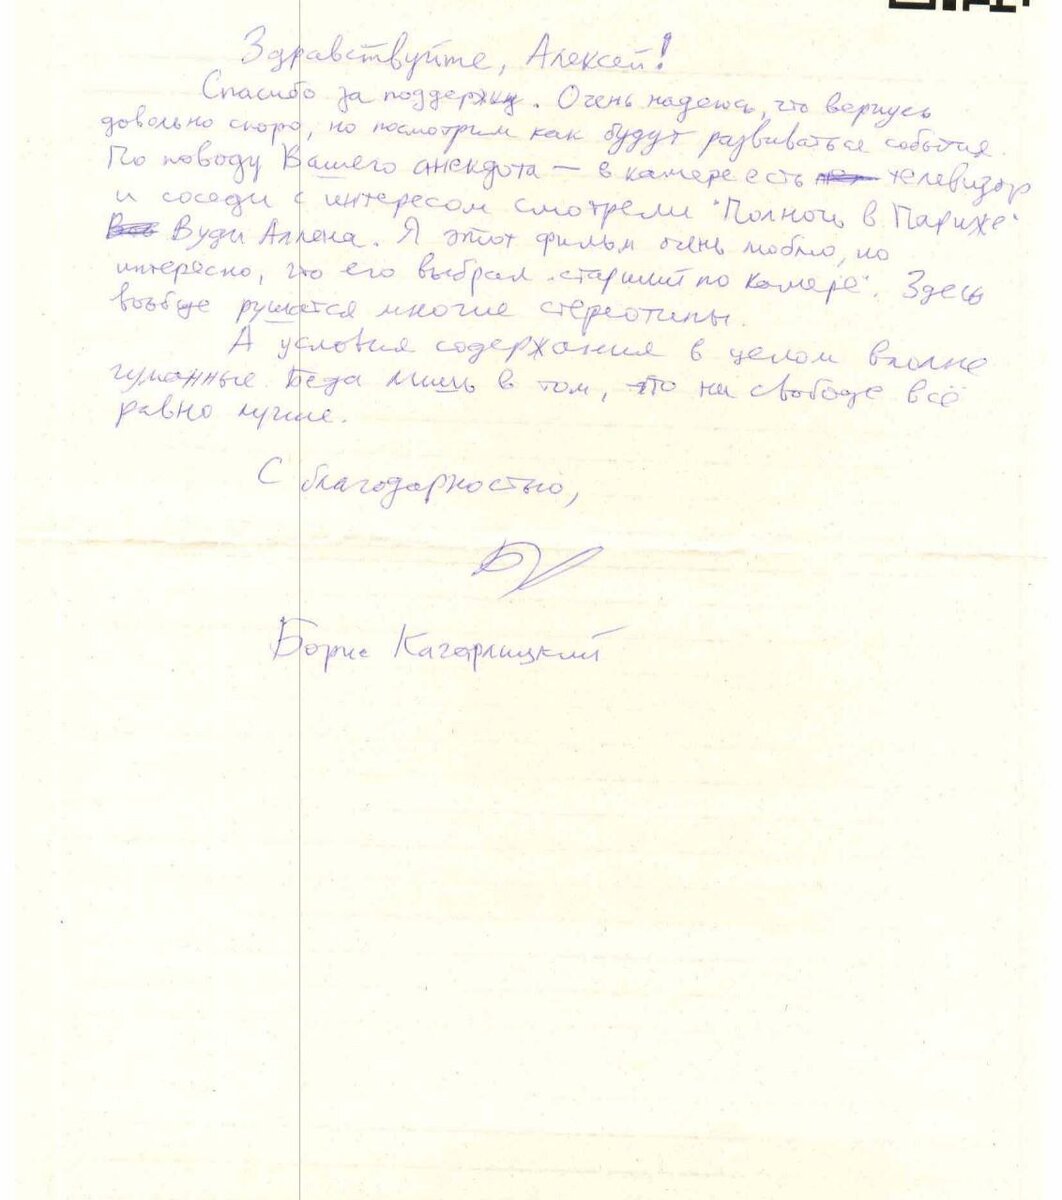 Здравствуйте, Алексей!
Спасибо за поддержку. Очень надеюсь, что вернусь
довольно скоро, но посмотрим как будут развиваться события.
По поводу Вашего анекдота — в камере есть телевизор
и соседи с интересом смотрели "Полночь в Париже"
Вуди Аллена. Я этот фильм очень люблю, но
интересно, что его выбрал "старший по камере". Здесь
вообще рушатся многие стереотипы.
А условия содержания в целом вполне
гуманные. Беда лишь в том, что на свободе всё
равно лучше.
С благодарностью,
Борис Кагарлицкий